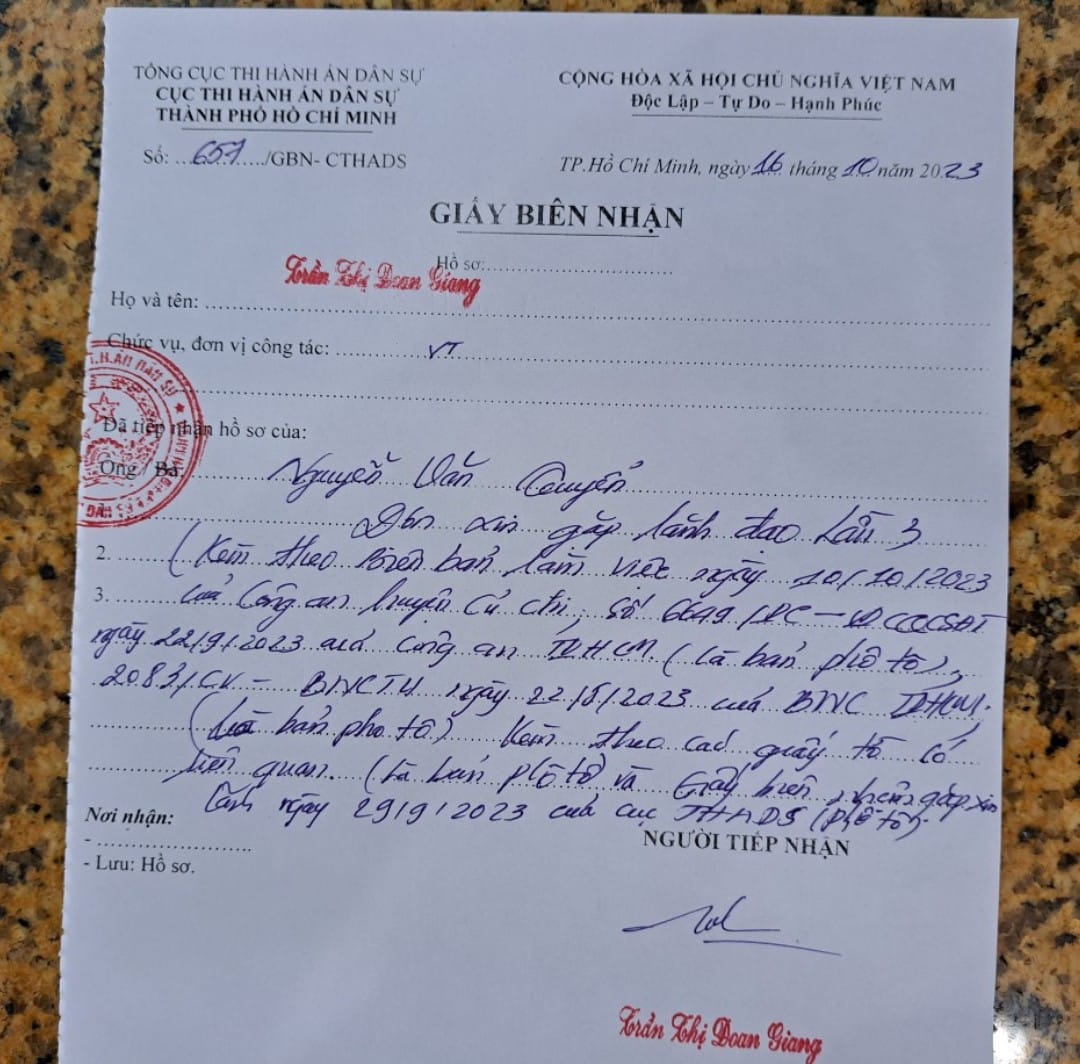 TỔNG CỤC THI HÀNH ÁN DÂN SỰ
CỤC THI HÀNH ÁN DÂN SỰ
THÀNH PHỐ HỒ CHÍ MINH
Số: 657/GBN- CTHADS
CỘNG HÒA XÃ HỘI CHỦ NGHĨA VIỆT NAM
Độc Lập – Tự Do – Hạnh Phúc
TP.Hồ Chí Minh, ngày 16 tháng 10 năm 2023
GIẤY BIÊN NHẬN
Hồ sơ:
Trần Thị Đoan Giang
Họ và tên:
Chức vụ, đơn vị công tác: VT
Đã tiếp nhận hồ sơ của:
Ông / Bà Nguyễn Văn
Đơn xin gặp lãnh đạo lần 3
2. (Kèm theo biên bản làm việc ngày 10/10/2023
3. của Công an huyện Củ Chi, số 6649
ngày 22/9/2023 của Công an TPHCM (là bản phô tô),
2083/CV – BNCTU ngày 22/5/2023 của BNC TPHCM
(là bản pho tô) Kèm theo các giấy tờ có
liên quan. (là bản phô tô) và Giấy biên
ngày 29/9/2023 của cục THADS (phô tô).
Nơi nhận:
-
- Lưu: Hồ sơ.
NGƯỜI TIẾP NHẬN
Trần Thị Đoan Giang